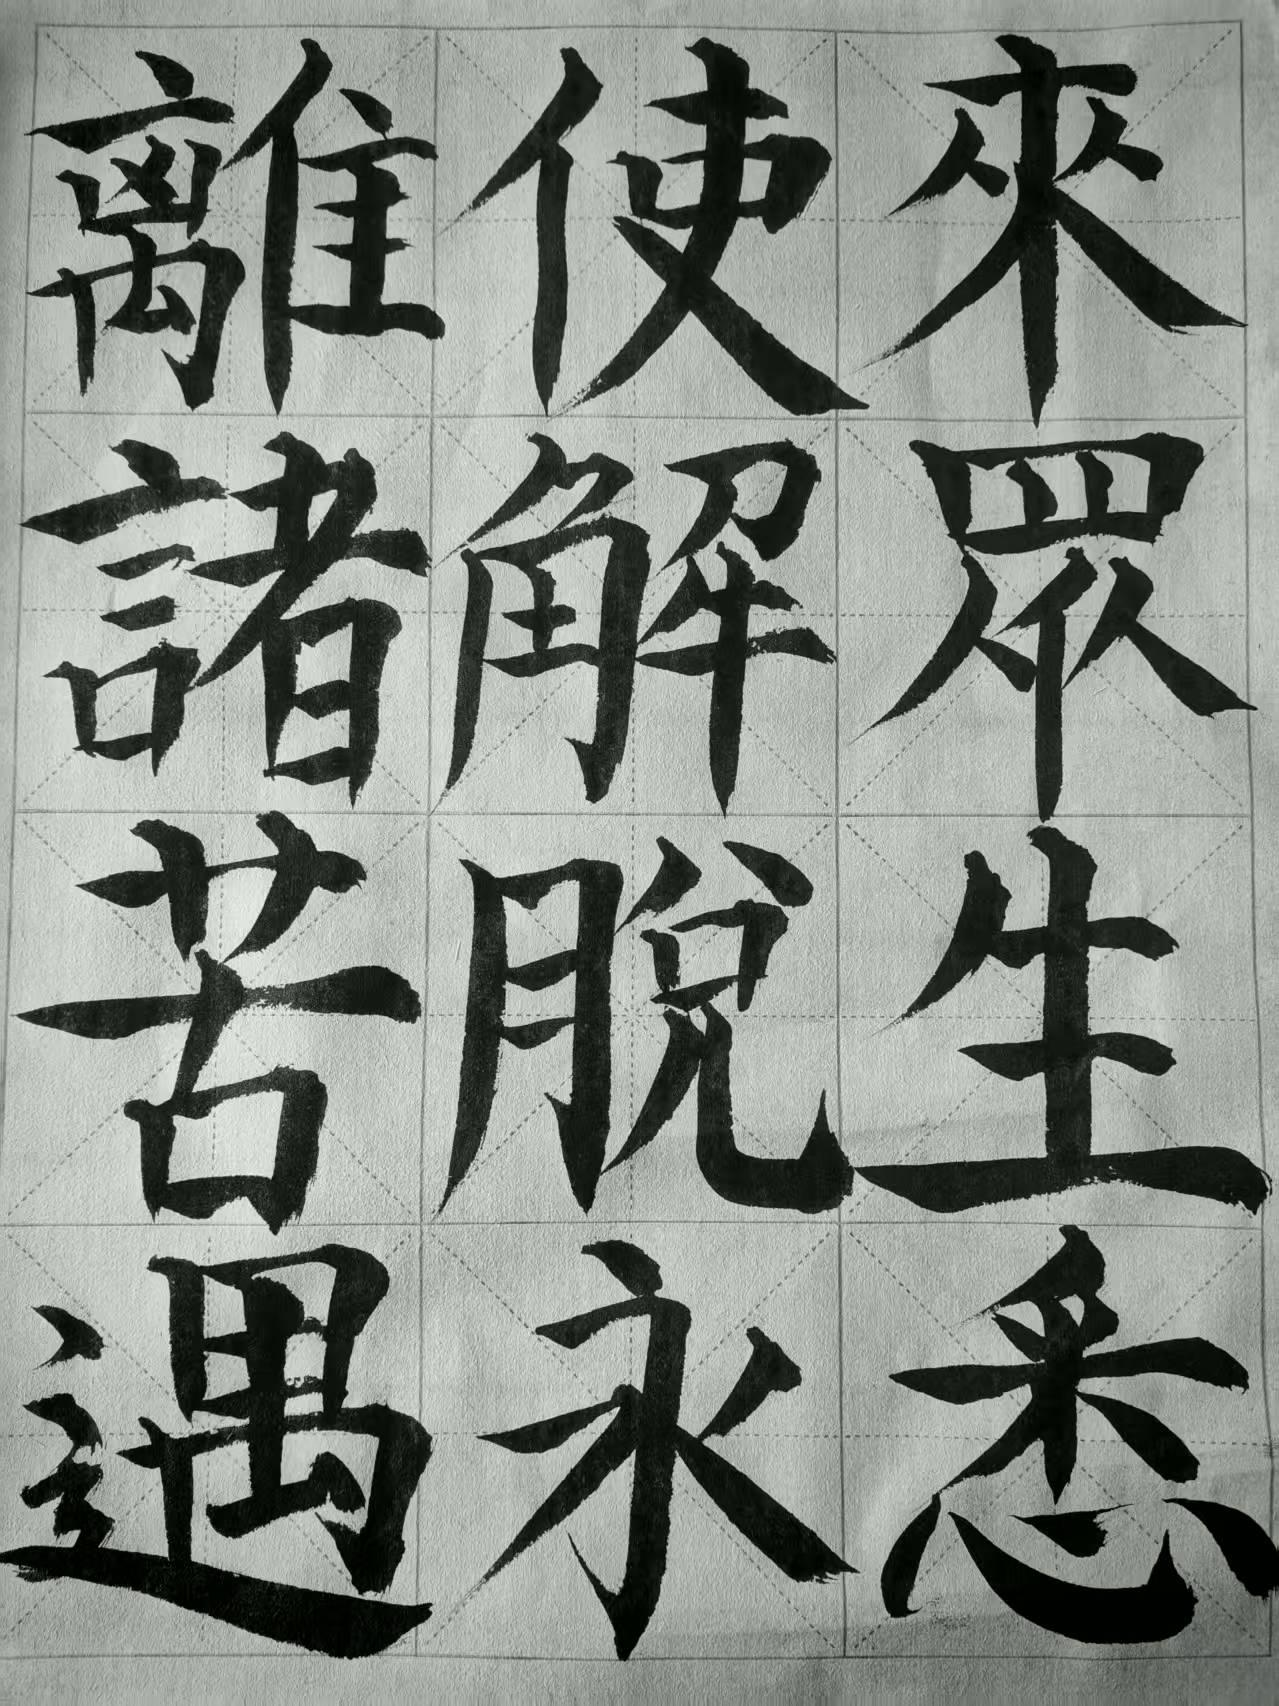 來眾生悉
使解脫永
離諸苦遇